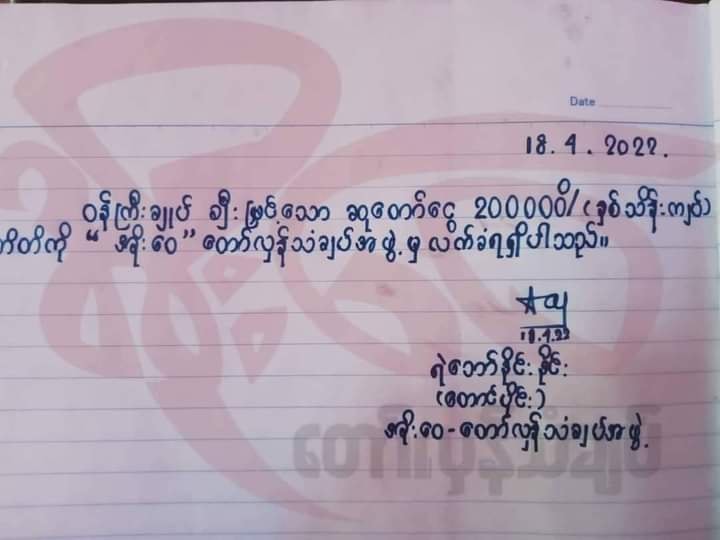 Date
18.4.2022.
ဝန်ကြီးချုပ် ချီးမြှင့်သော ဆုတော်ငွေ 200000ိ/(နှစ်သိန်းကျပ်)
တိတိကို "အိုးဝေ" တော်လှန်သံချပ်အဖွဲ့မှ လက်ခံရရှိပါသည်။
18.4.22
ရဲဘော်နိုင်းနိုင်း
(တောင်ပိုင်း)
အိုးဝေ-တော်လှန်သံချပ်အဖွဲ့
တော်လှန်သံချပ်